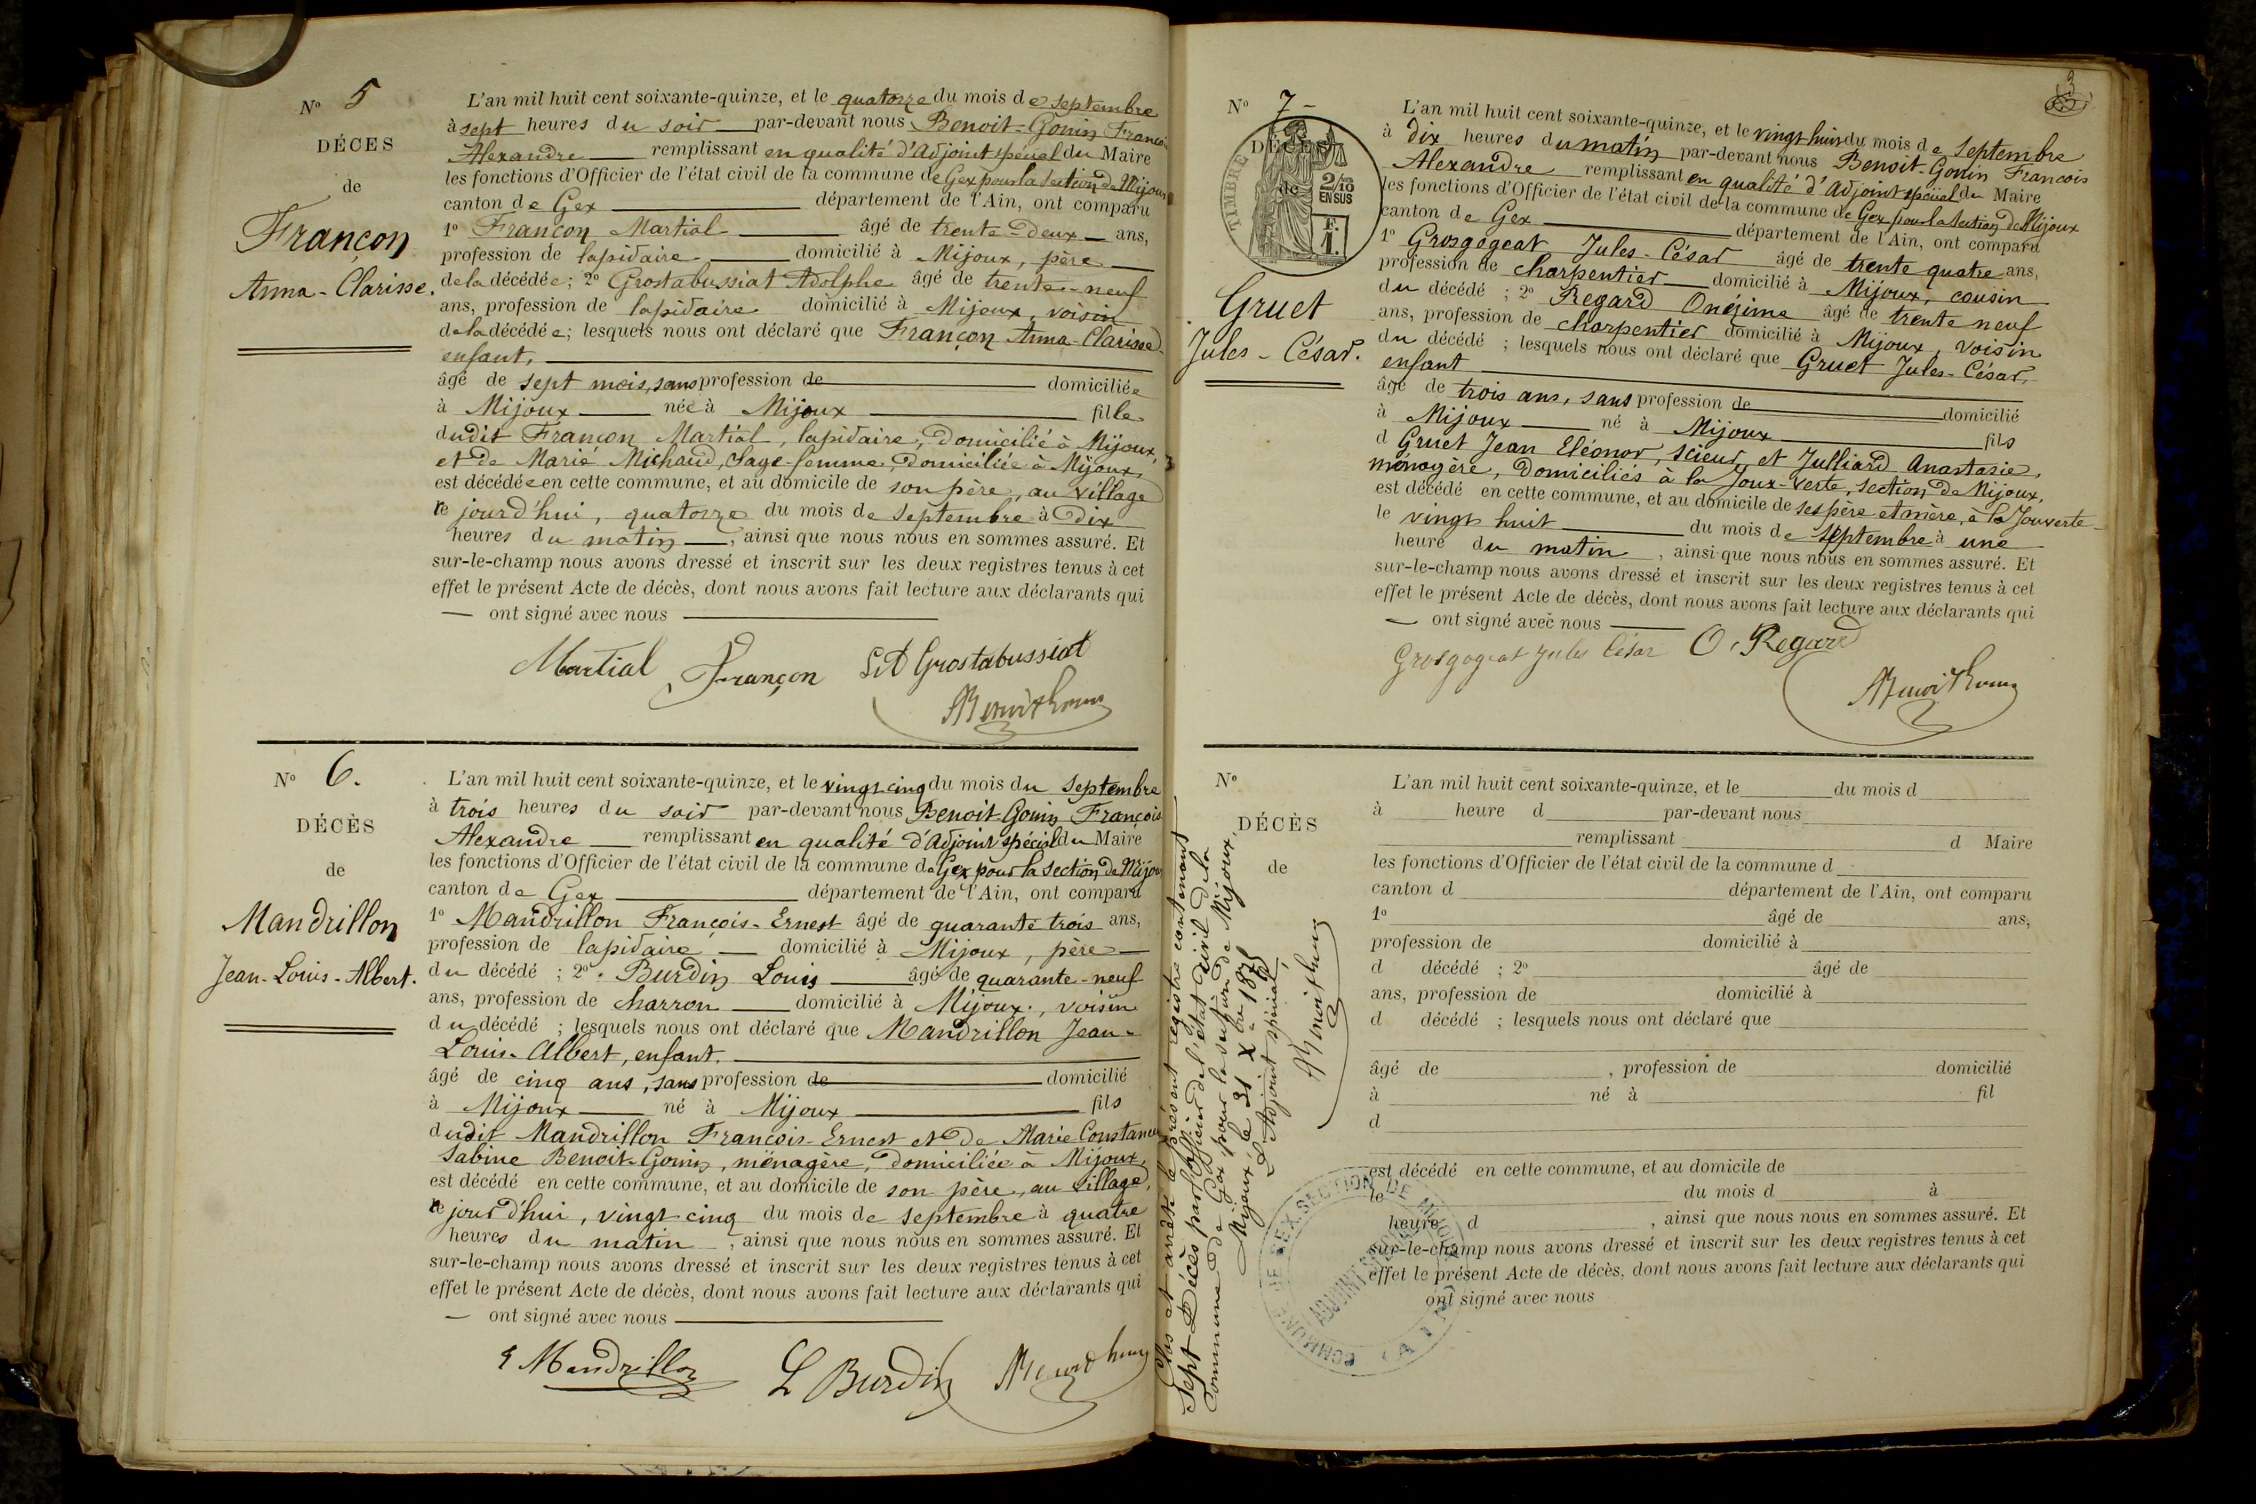 N° 5
DÉCES
de
Françon
Anna-Clarisse.
L'an mil huit cent soixante-quinze, et le quatorze du mois de septembre
à sept heures du soir par-devant nous Benoit-Gonin François
Alexandre remplissant en qualité d'Adjoint spécial du Maire
les fonctions d'Officier de l'état civil de la commune de Gex pour la section de Mijoux
canton de Gex département de l'Ain, ont comparu
1° Françon Martial âgé de trente-deux ans,
profession de lapidaire domicilié à Mijoux, père
de la décédée ; 2° Grostabussiat Adolphe âgé de trente-neuf
ans, profession de lapidaire domicilié à Mijoux, voisin
de la décédée ; lesquels nous ont déclaré que Françon Anna-Clarisse
enfant,
âgé de sept mois, sans profession de domiciliée
à Mijoux née à Mijoux fille
dudit Françon Martial, lapidaire, domicilié à Mijoux,
et de Marie Michaud, sage-femme, domiciliée à Mijoux,
est décédée en cette commune, et au domicile de son père, au village
ce jourd'hui, quatorze du mois de septembre à dix
heures du matin, ainsi que nous nous en sommes assuré. Et
sur-le-champ nous avons dressé et inscrit sur les deux registres tenus à cet
effet le présent Acte de décès, dont nous avons fait lecture aux déclarants qui
— ont signé avec nous
Martial Françon Grostabussiat
N° 6.
DÉCÈS
de
Mandrillon
Jean-Louis-Albert.
L'an mil huit cent soixante-quinze, et le vingt cinq du mois du septembre
à trois heures du soir par-devant nous Benoit-Gonin François
Alexandre remplissant en qualité d'Adjoint spécial du Maire
les fonctions d'Officier de l'état civil de la commune de Gex pour la section de Mijoux
canton de Gex département de l'Ain, ont comparu
1° Mandrillon François-Ernest âgé de quarante trois ans,
profession de lapidaire domicilié à Mijoux, père
du décédé ; 2° Burdin Louis âgé de quarante-neuf
ans, profession de charron domicilié à Mijoux, voisin
du décédé ; lesquels nous ont déclaré que Mandrillon Jean-
Louis-Albert, enfant.
âgé de cinq ans, sans profession de domicilié
à Mijoux né à Mijoux fils
dudit Mandrillon François-Ernest et de Marie Constance
Sabine Benoit-Gonin, ménagère, domiciliée à Mijoux,
est décédé en cette commune, et au domicile de son père, au village,
ce jourd'hui, vingt cinq du mois de septembre à quatre
heures du matin, ainsi que nous nous en sommes assuré. Et
sur-le-champ nous avons dressé et inscrit sur les deux registres tenus à cet
effet le présent Acte de décès, dont nous avons fait lecture aux déclarants qui
— ont signé avec nous
E Mandrillon L Burdin
3
N° 7-
DÉCÈS
de
TIMBRE
2/10
EN SUS
F.
1.
Gruet
Jules-César.
L'an mil huit cent soixante-quinze, et le vingt huit du mois de septembre
à dix heures du matin par-devant nous Benoit-Gonin François
Alexandre remplissant en qualité d'Adjoint spécial du Maire
les fonctions d'Officier de l'état civil de la commune de Gex pour la section de Mijoux
canton de Gex département de l'Ain, ont comparu
1° Grosgogeat Jules-César âgé de trente quatre ans,
profession de charpentier domicilié à Mijoux, cousin
du décédé ; 2° Regard Onésime âgé de trente neuf
ans, profession de charpentier domicilié à Mijoux, voisin
du décédé ; lesquels nous ont déclaré que Gruet Jules-César,
enfant
âgé de trois ans, sans profession de domicilié
à Mijoux né à Mijoux fils
d Gruet Jean Eléonor, scieur, et Julliard Anastasie,
ménagère, domiciliés à la Joux-Verte, section de Mijoux,
est décédé en cette commune, et au domicile de ses père et mère, à la Jouverte
le vingt huit du mois de septembre à une
heure du matin, ainsi que nous nous en sommes assuré. Et
sur-le-champ nous avons dressé et inscrit sur les deux registres tenus à cet
effet le présent Acte de décès, dont nous avons fait lecture aux déclarants qui
— ont signé avec nous
Grosgogeat jules César O. Regard
N°
DÉCÈS
de
L'an mil huit cent soixante-quinze, et le du mois d
à heure d par-devant nous
remplissant d Maire
les fonctions d'Officier de l'état civil de la commune d
canton d département de l'Ain, ont comparu
1° âgé de ans,
profession de domicilié à
d décédé ; 2° âgé de
ans, profession de domicilié à
d décédé ; lesquels nous ont déclaré que
âgé de , profession de domicilié
à né à fil
d
est décédé en cette commune, et au domicile de
le du mois d à
heure d , ainsi que nous nous en sommes assuré. Et
sur-le-champ nous avons dressé et inscrit sur les deux registres tenus à cet
effet le présent Acte de décès, dont nous avons fait lecture aux déclarants qui
ont signé avec nous
Clos et arrêté le présent registre contenant
Sept Décès par l'Officier de l'état civil de la
Commune de Gex, pour la section de Mijoux,
Mijoux, le 31 Xbre 1875
L'Adjoint spécial,
COMMUNE DE GEX. SECTION DE MIJOUX
ADJOINT SPÉCIAL
(AIN)